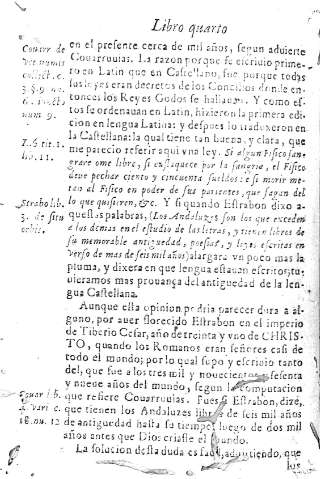 Libro quarto
Couar. de
vet. numis
collect. c.
3. §. 9. nu.
num 9.
L. 6 tit. 1.
lib. 11.
Strabo lib.
3. de situ
orbis.
en el presente cerca de mil años, segun aduierte
Couarruuias. La razon porque se escriuio prime-
ro en Latin que en Castellano, fue porque todas
sus leyes eran decretos de los Concilios donde en-
tonces los Reyes Godos se hallauan. Y como es-
tos se ordenauan en Latin, hizieron la primera edi
cion en lengua Latina: y despues lo traduxeron en
la Castellana: la qual tiene tan buena, y clara, que
me parecio referir aqui vna ley. Si algun Fisico san-
grare ome libre, si enflaquece por la sangria, el Fisico
deue pechar ciento y cincuenta sueldos: e si morir me-
tan al Fisico en poder de sus parientes, que fagan del
lo que quisieren, &c. Y si quando Estrabon dixo a-
questas palabras, (Los Andaluzes son los que exceden
a los demas en el estudio de las letras, y tienen libros de
su memorable antiguedad, poesias, y leyes escritas en
verso de mas de seis mil años) alargara vn poco mas la
pluma, y dixera en que lengua estauan escritos, tu-
uieramos mas prouança del antiguedad de la len-
gua Castellana.
Aunque esta opinion podria parecer dura a al-
guno, por auer florecido Estrabon en el imperio
de Tiberio Cesar, año de treinta y vno de CHRIS-
TO, quando los Romanos eran señores casi de
todo el mundo; por lo qual supo y escriuio tanto
del, que fue a los tres mil y nouecientos y sesenta
y nueue años del mundo, segun la computacion
que refiere Couarruuias. Pues si Estrabon, dize,
que tienen los Andaluzes libros de seis mil años
de antiguedad hasta su tiempo, luego de dos mil
años antes que Dios criasse el mundo.
Couar. lib.
4. vari. c.
18. nu. 12
La solucion desta duda es facil, aduirtiendo, que
los